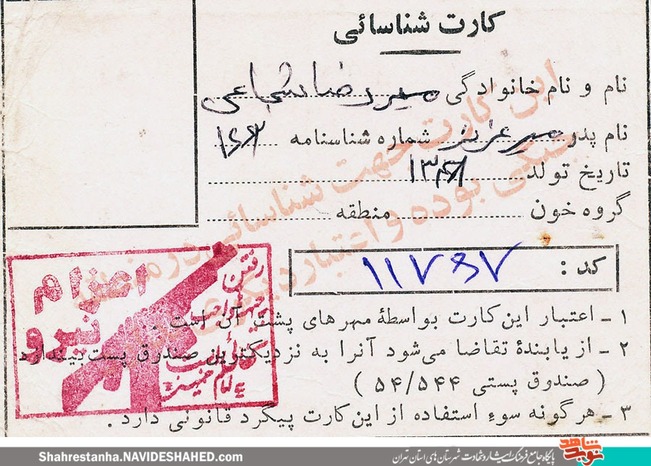 کارت شناسائی
نام و نام خانوادگی میررضا شجاعی
نام پدر میرعزیز شماره شناسنامه ۱۶۳
تاریخ تولد ۱۳۴۱
گروه خون منطقه
این کارت جهت شناسائی در
جنگی بوده و اعتبار دیگری
کد : ۱۱۷۶۷
۱ - اعتبار این کارت بواسطهٔ مهرهای پشت آن است .
۲ - از یابندهٔ تقاضا می‌شود آنرا به نزدیکترین صندوق پست بیندازد
( صندوق پستی ۵۴/۵۴۴ )
۳ - هرگونه سوء استفاده از این کارت پیگرد قانونی دارد .
اعزام
نیرو
رفتن
امام خمینی
Shahrestanha.NAVIDESHAHED.com
نوید شاهد
پایگاه جامع فرهنگ ایثار و شهادت شهرستان های استان تهران